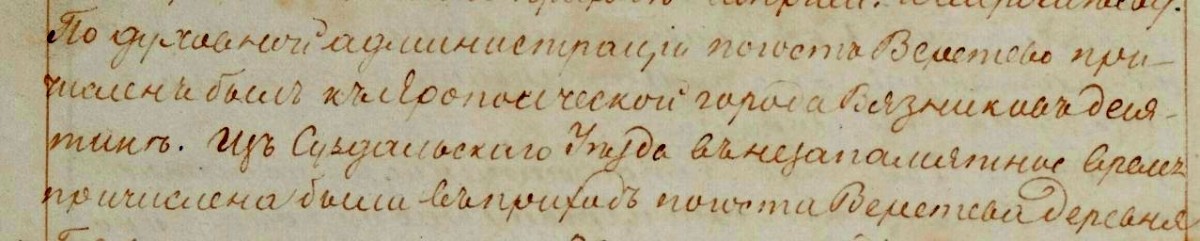 По духовной администраціи погостъ Веретево при-
численъ былъ къ Ярополческой города Вязниковъ деся-
тинѣ. Изъ Суздальскаго Уѣзда въ незапамятное время
причислена была въ приходъ погоста Веретева деревня